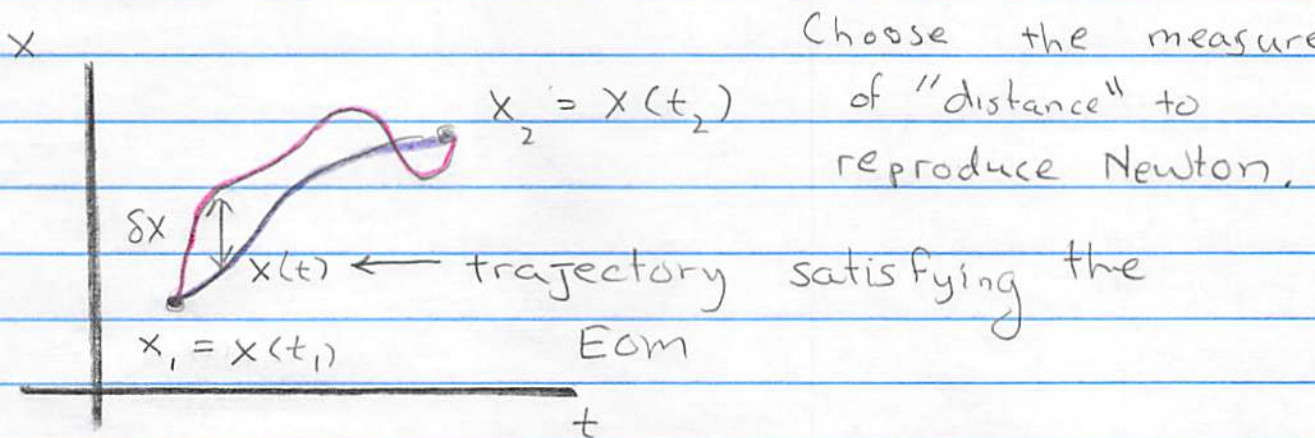 Choose the measure
of "distance" to
reproduce Newton.
x
x₂ = x(t₂)
δx
x(t) ← trajectory satisfying the
EOM
x₁ = x(t₁)
t